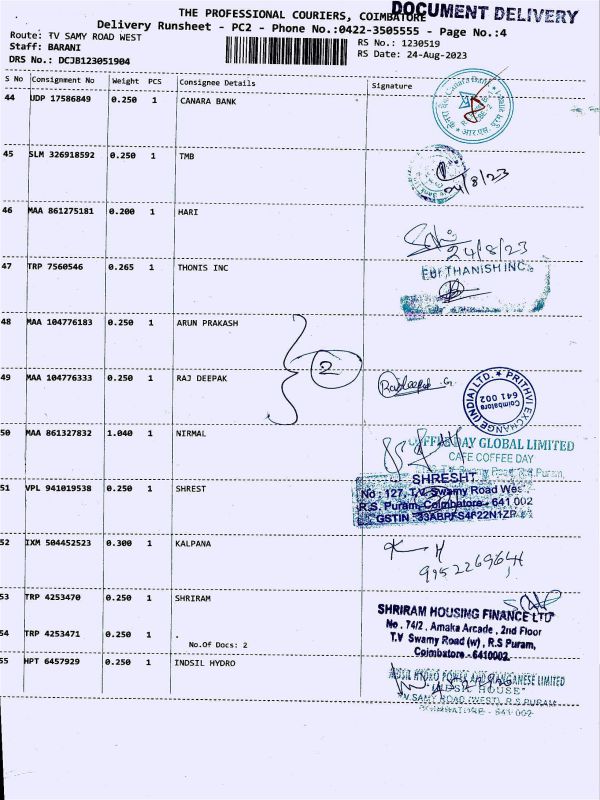 THE PROFESSIONAL COURIERS, COIMBATORE
DOCUMENT DELIVERY
Delivery Runsheet - PC2 - Phone No.:0422-3505555 - Page No.:4
Route: TV SAMY ROAD WEST
RS No.: 1230519
Staff: BARANI
RS Date: 24-Aug-2023
DRS No.: DCJB123051904
S No Consignment No Weight PCS Consignee Details Signature
44 UDP 17586849 0.250 1 CANARA BANK
Canara Bank
45 SLM 326918592 0.250 1 TMB
24/8/23
46 MAA 861275181 0.200 1 HARI
24/8/23
47 TRP 7560546 0.265 1 THONIS INC
THANISH INC.
48 MAA 104776183 0.250 1 ARUN PRAKASH
2
49 MAA 104776333 0.250 1 RAJ DEEPAK
PRITHVI EXCHANGE (INDIA) LTD.
Coimbatore
641 002
50 MAA 861327832 1.040 1 NIRMAL
DAY GLOBAL LIMITED
CAFE COFFEE DAY
Swamy Road, R.S Puram,
51 VPL 941019538 0.250 1 SHREST
SHRESHT
No : 127, T.V. Swamy Road West,
R.S. Puram, Coimbatore - 641 002
GSTIN :
52 IXM 504452523 0.300 1 KALPANA
53 TRP 4253470 0.250 1 SHRIRAM
SHRIRAM HOUSING FINANCE LTD
No. 74/2, Amaka Arcade, 2nd Floor
T.V Swamy Road (w), R.S Puram,
Coimbatore - 6410002.
54 TRP 4253471 0.250 1 .
No.Of Docs: 2
55 HPT 6457929 0.250 1 INDSIL HYDRO
INDSIL HYDRO POWER AND MANGANESE LIMITED
"INDSIL HOUSE"
T.V SAMY ROAD (WEST), R.S PURAM
COIMBATORE - 641 002